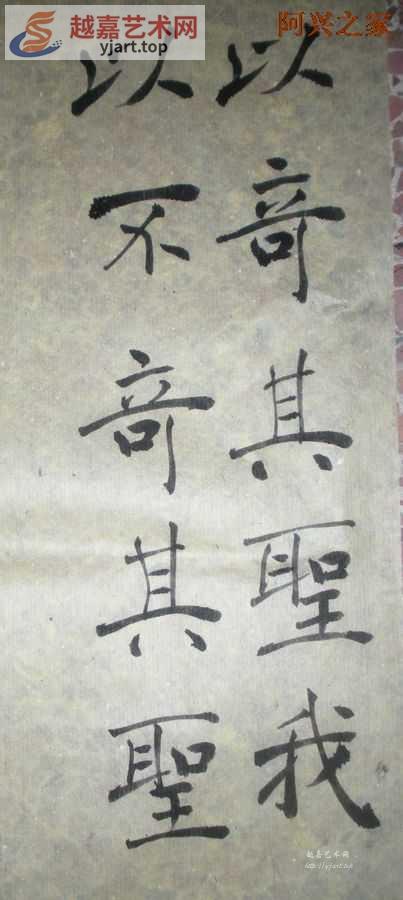 越嘉艺术网
yjart.top
阿兴之家
以奇其聖我
以不奇其聖
越嘉艺术网